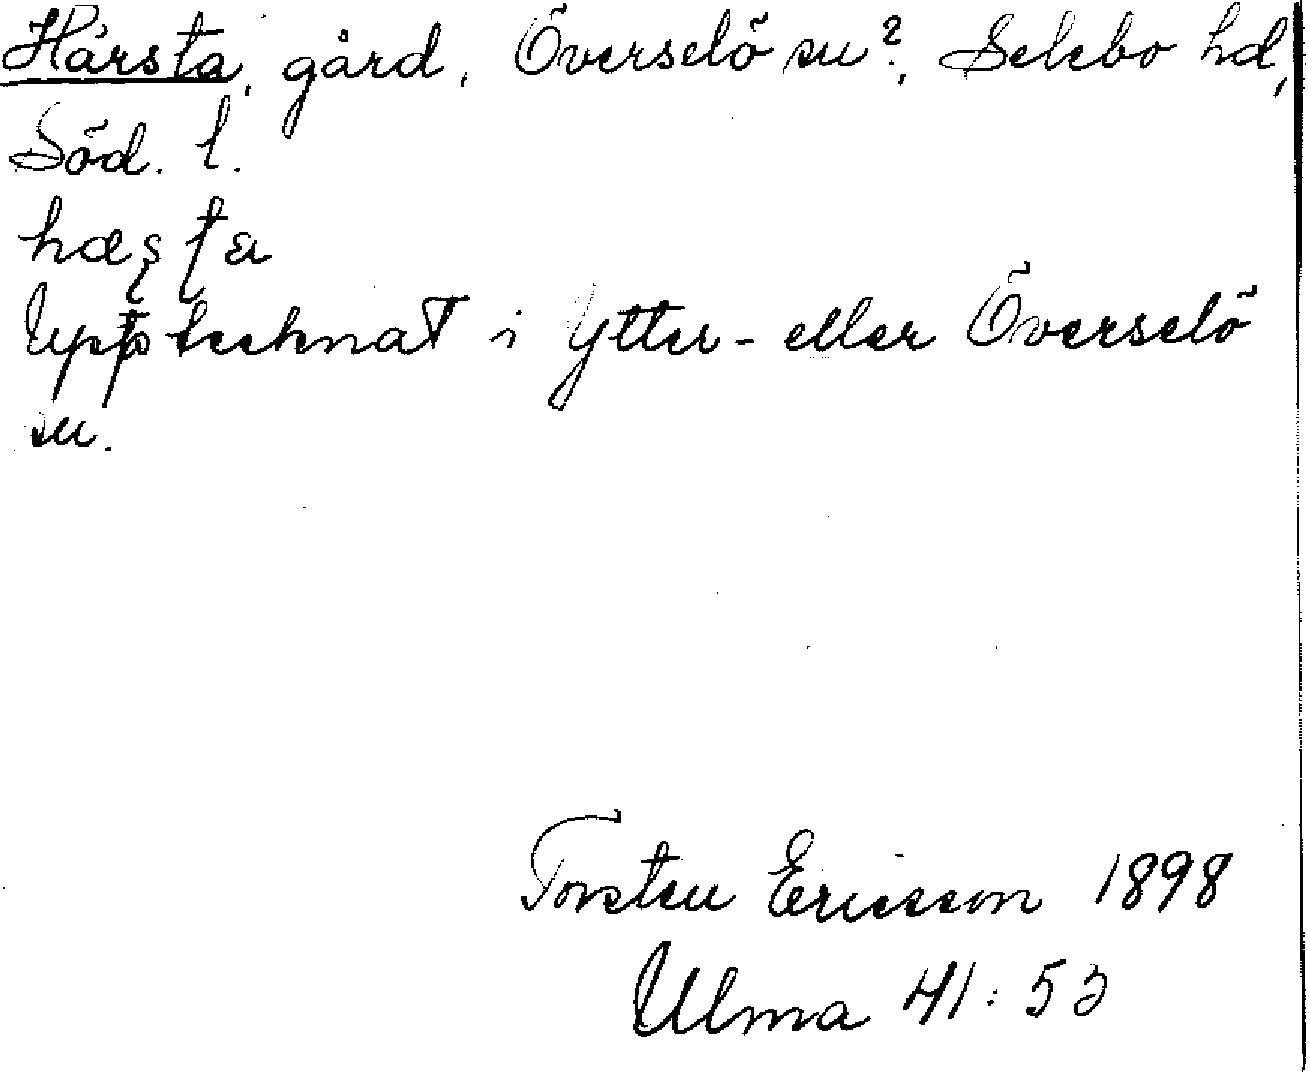 Härsta, gård, Överselö su?, Selebo hd,
Söd. l.
hæʂʈa
Upptecknat i Ytter- eller Överselö
su.
Torsten Ericsson 1898
Ulma 41:53